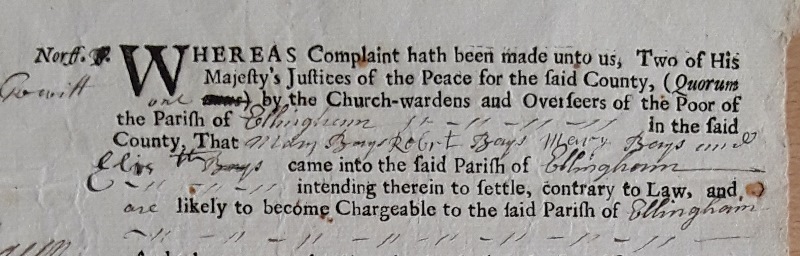 Norff. ſſ. WHEREAS Complaint hath been made unto us, Two of His
Majeſty's Juſtices of the Peace for the ſaid County, (Quorum
one) by the Church-wardens and Overſeers of the Poor of
the Pariſh of Ellingham in the ſaid
County, That Mary Bays Robert Bays Mary Bays and
Elizth Bays came into the ſaid Pariſh of Ellingham
intending therein to ſettle, contrary to Law, and
are likely to become Chargeable to the ſaid Pariſh of Ellingham